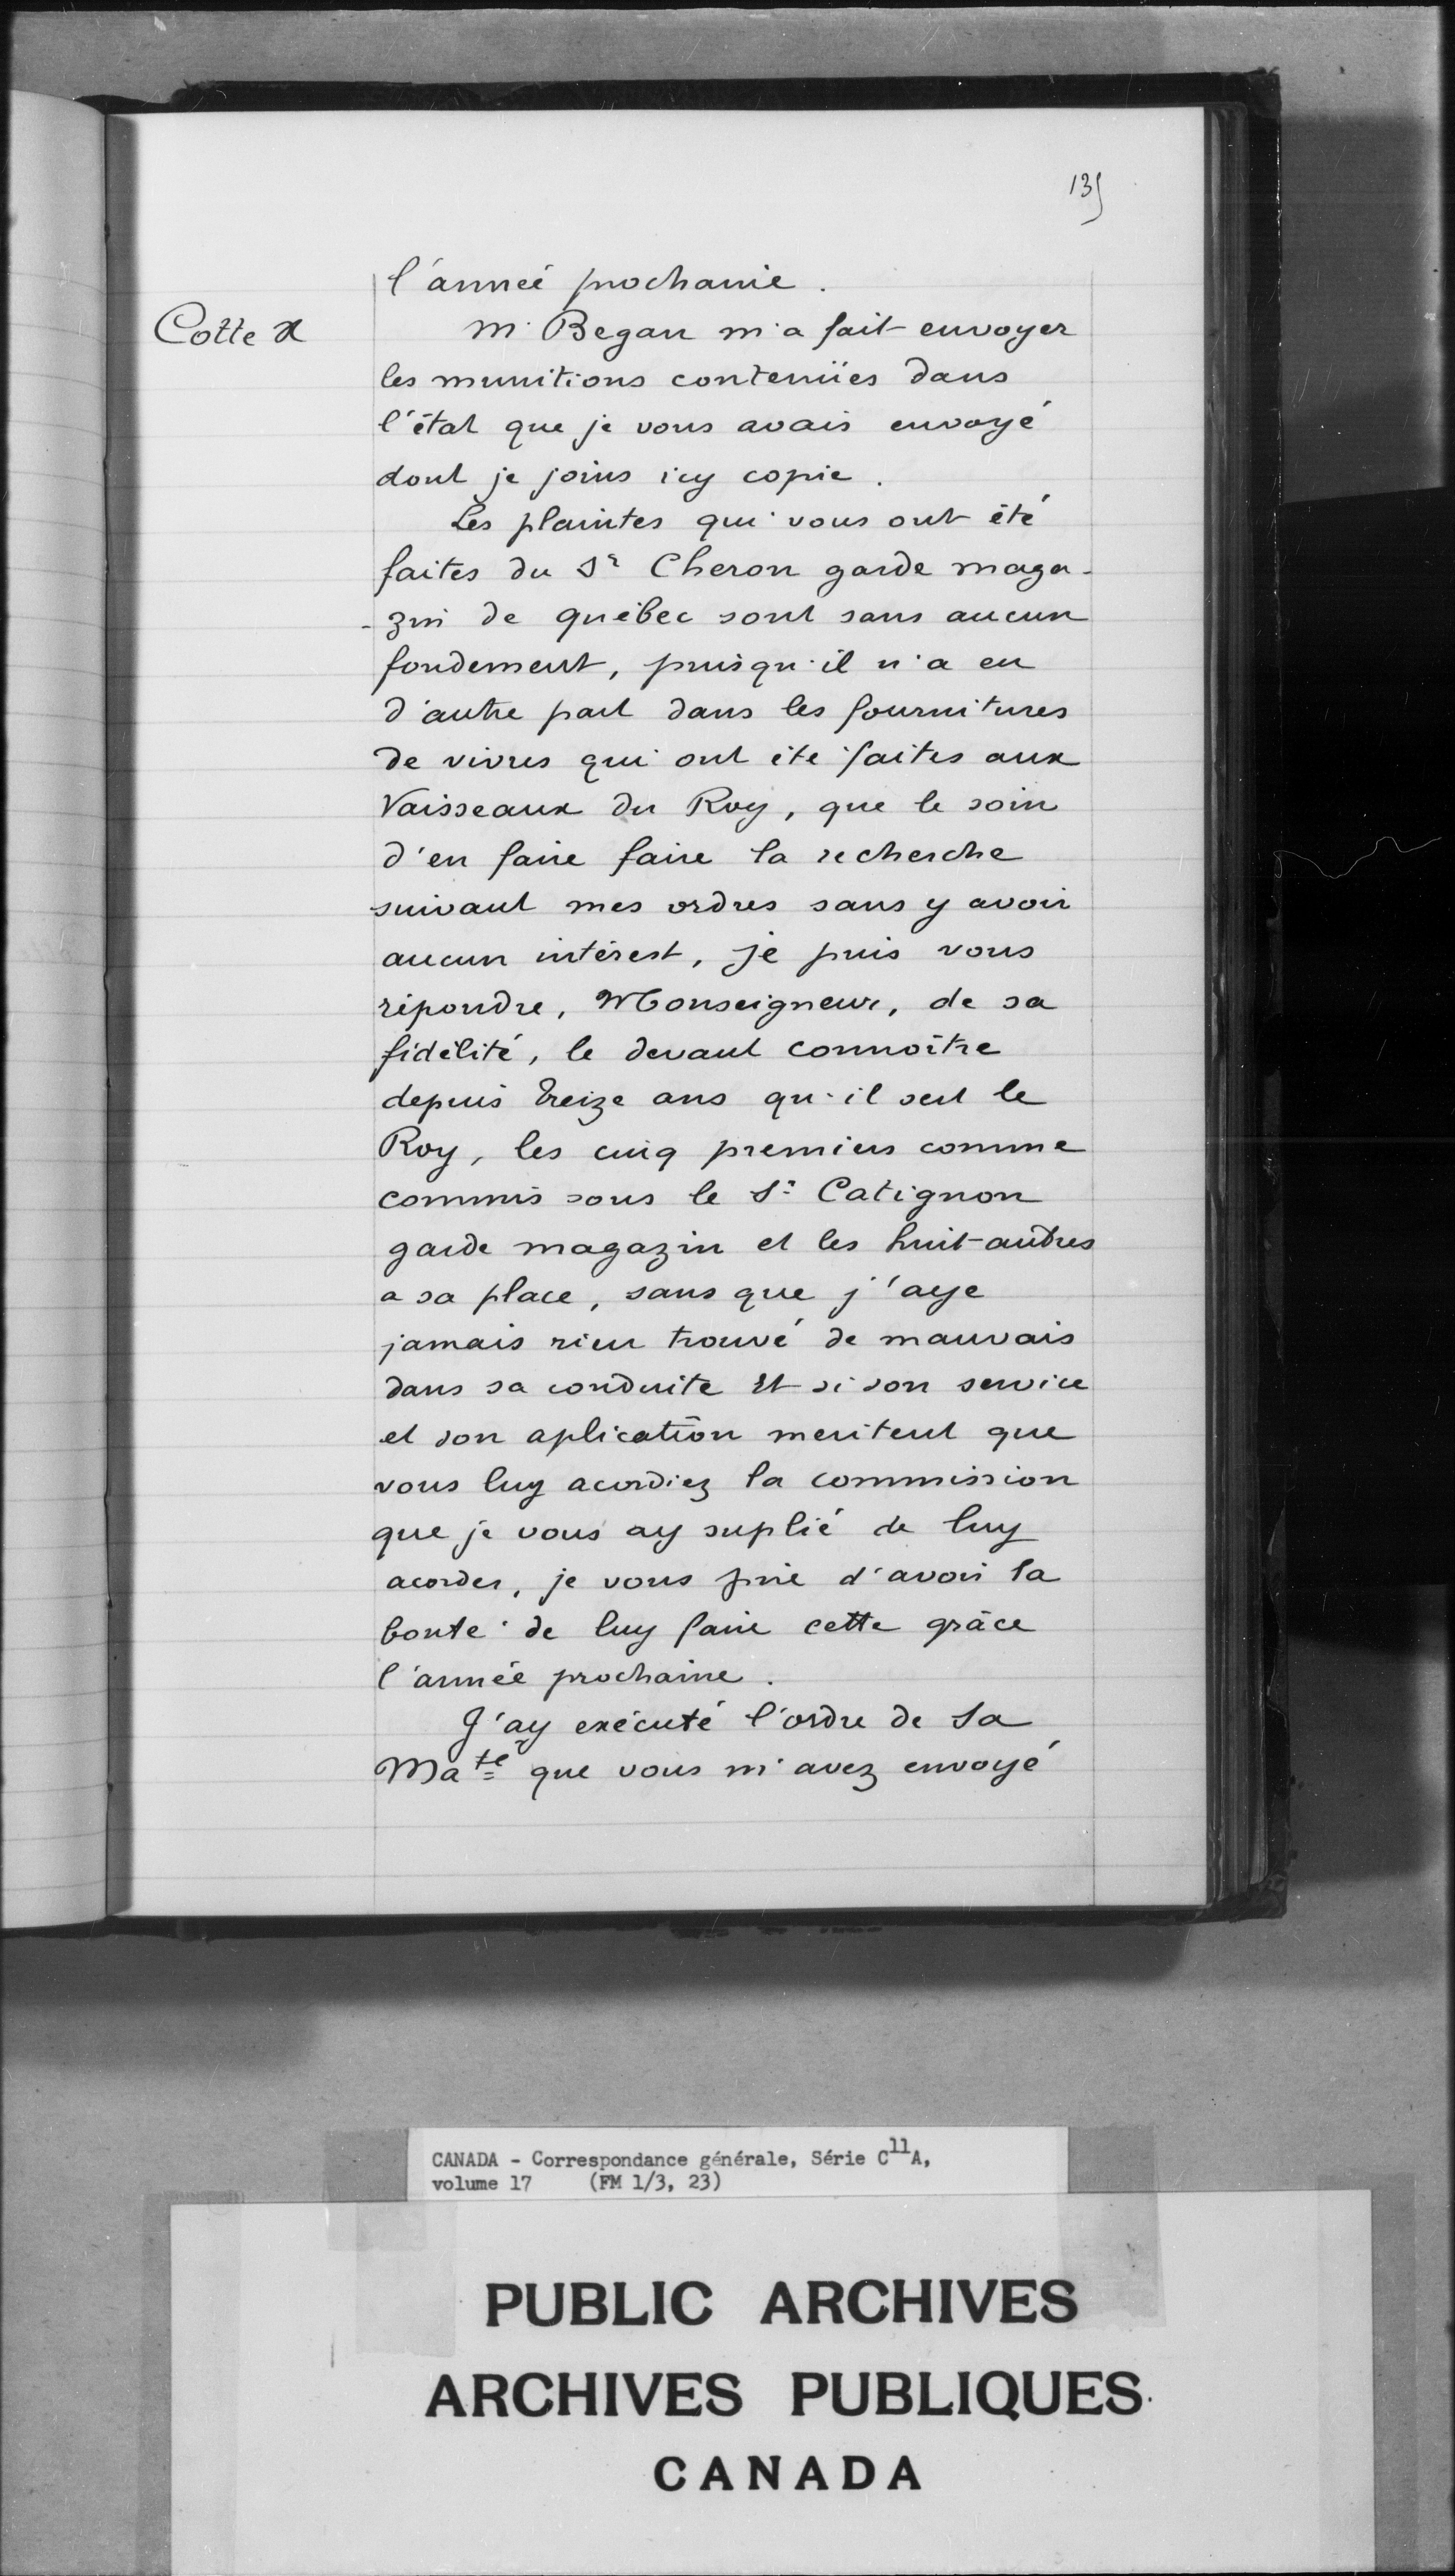 135
l'année prochaine.
Cotte X
M. Began m'a fait envoyer
les munitions contenües dans
l'état que je vous avais envoyé
dont je joins icy copie.
Les plaintes qui vous ont été
faites du Sr Cheron garde maga-
-zin de québec sont sans aucun
fondement, puisqu'il n'a eu
d'autre part dans les fournitures
de vivres qui ont été faites aux
Vaisseaux du Roy, que le soin
d'en faire faire la recherche
suivant mes ordres sans y avoir
aucun intérest, je puis vous
répondre, Monseigneur, de sa
fidélité, le devant connoître
depuis treize ans qu'il sert le
Roy, les cinq premiers comme
commis sous le Sr Catignon
garde magazin et les huit autres
a sa place, sans que j'aye
jamais rien trouvé de mauvais
dans sa conduite Et si son service
et son aplication meritent que
vous luy acordiez la commission
que je vous ay suplié de luy
acorder, je vous prie d'avoir la
bonté de luy faire cette grâce
l'année prochaine.
J'ay exécuté l'ordre de Sa
Maté que vous m'avez envoyé
CANADA - Correspondance générale, Série C11A,
volume 17 (FM 1/3, 23)
PUBLIC ARCHIVES
ARCHIVES PUBLIQUES
CANADA